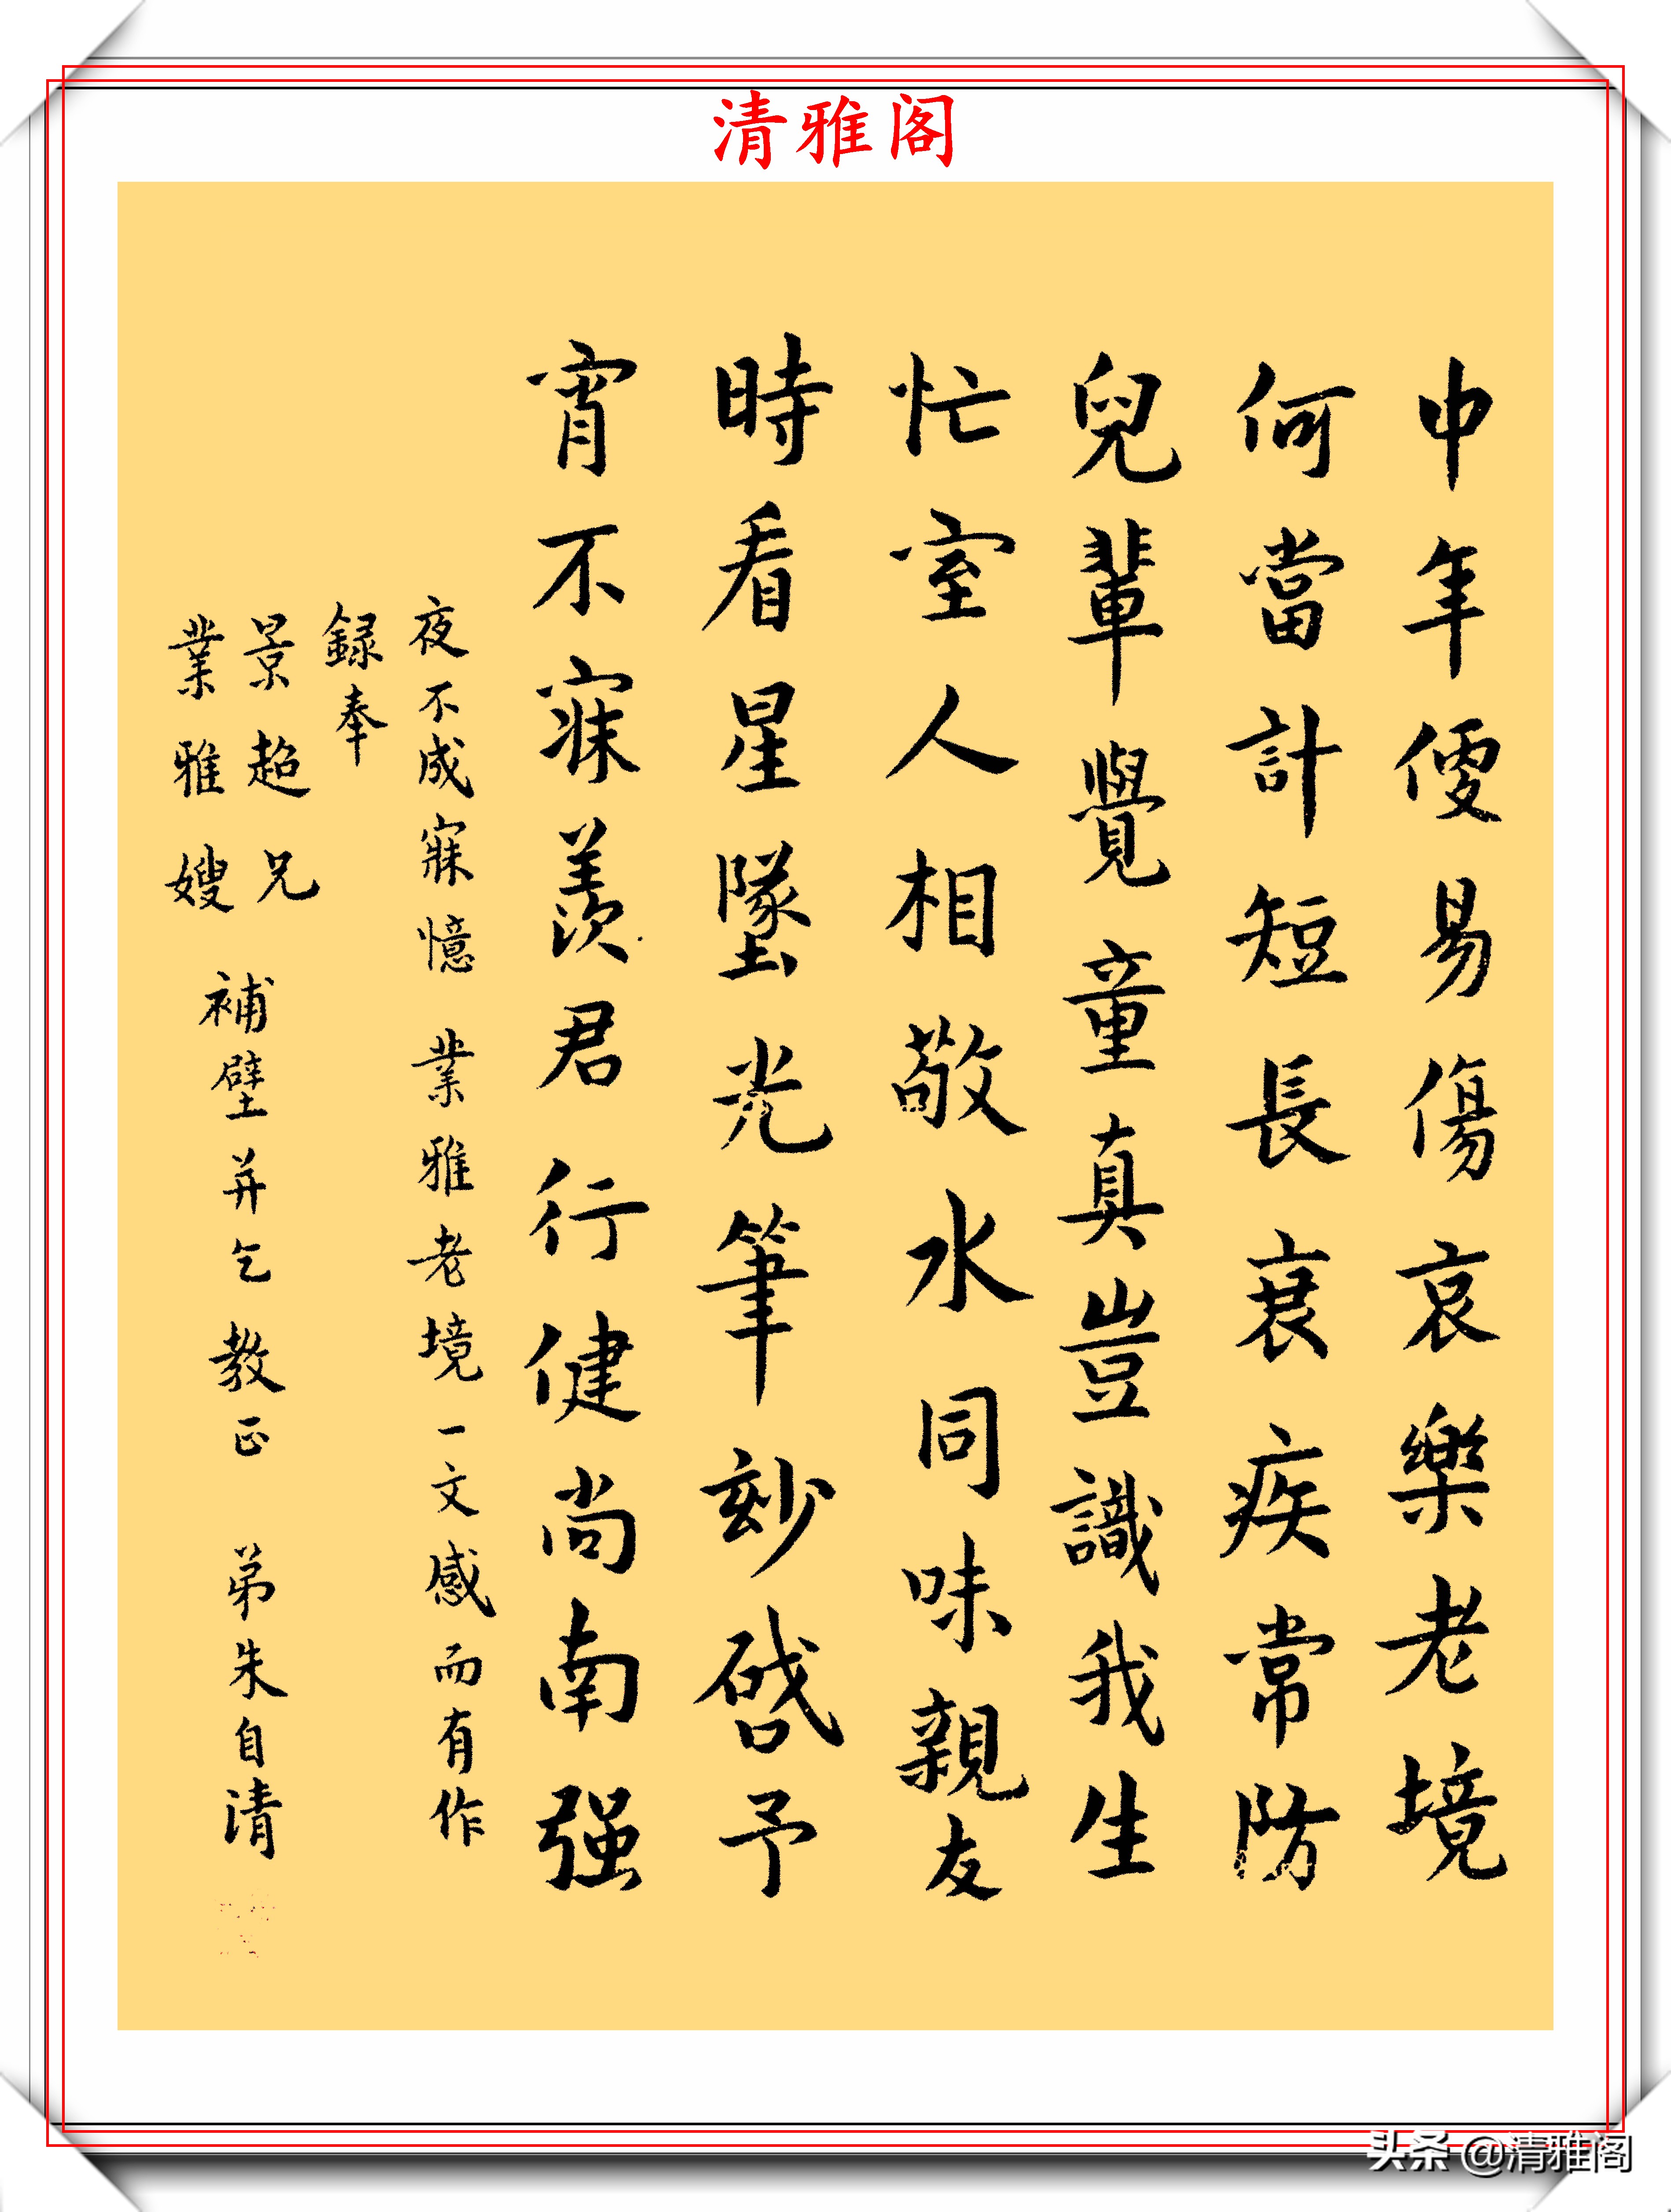 清雅阁
中年便易傷哀樂老境
何當計短長衰疾常防
兒輩覺童真豈識我生
忙室人相敬水同味親友
時看星墜光筆妙啓予
宵不寐羨君行健尚南强
夜不成寐憶 業雅老境一文感而有作
録奉
景超兄
業雅嫂
補壁并乞教正 弟朱自清
头条 @清雅阁